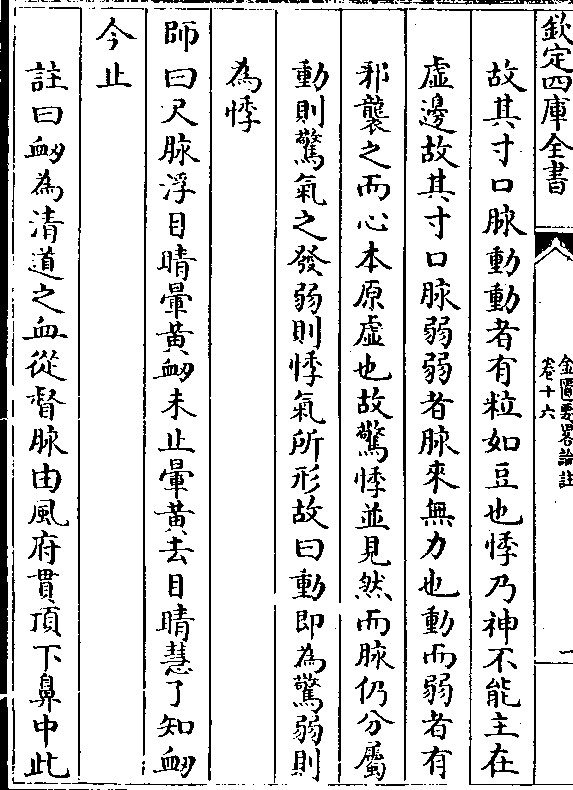 欽定四庫全書
金匱要畧論註
卷十六
一
故其寸口脉動動者有粒如豆也悸乃神不能主在
虚邊故其寸口脉弱弱者脉來無力也動而弱者有
邪襲之而心本原虚也故驚悸並見然而脉仍分屬
動則驚氣之發弱則悸氣所形故曰動即為驚弱則
為悸
師曰尺脉浮目睛暈黄衂未止暈黄去目睛慧了知衂
今止
註曰衂為清道之血從督脉由風府貫頂下鼻中此